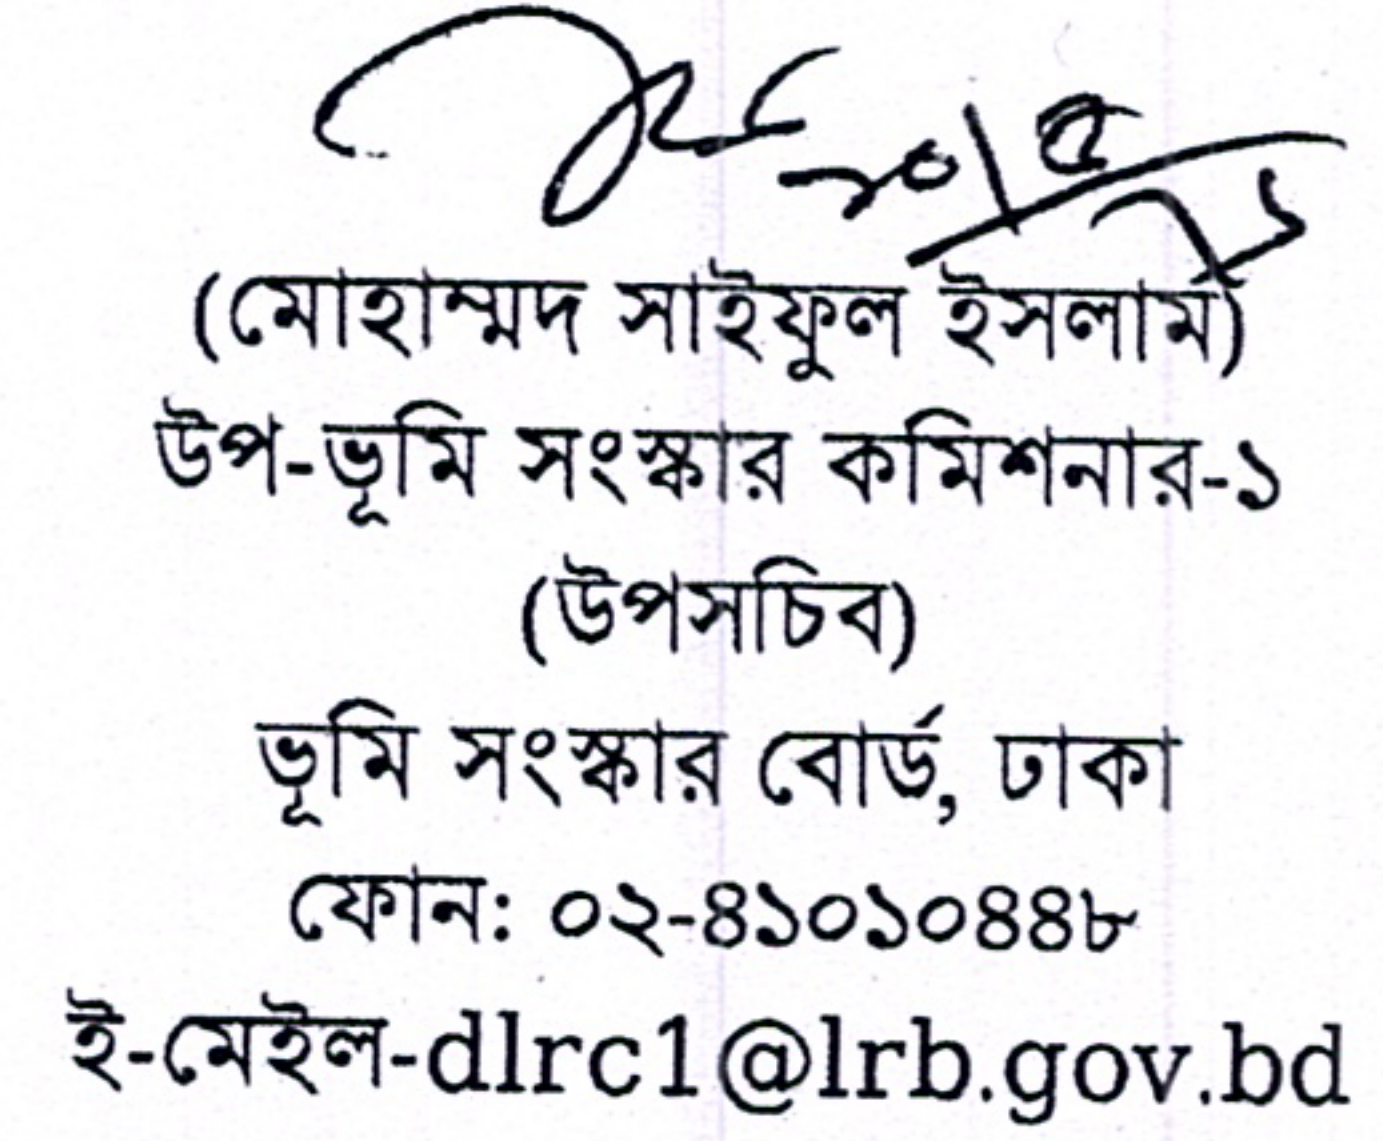 (মোহাম্মদ সাইফুল ইসলাম)
উপ-ভূমি সংস্কার কমিশনার-১
(উপসচিব)
ভূমি সংস্কার বোর্ড, ঢাকা
ফোন: ০২-৪১০১০৪৪৮
ই-মেইল-dlrc1@lrb.gov.bd